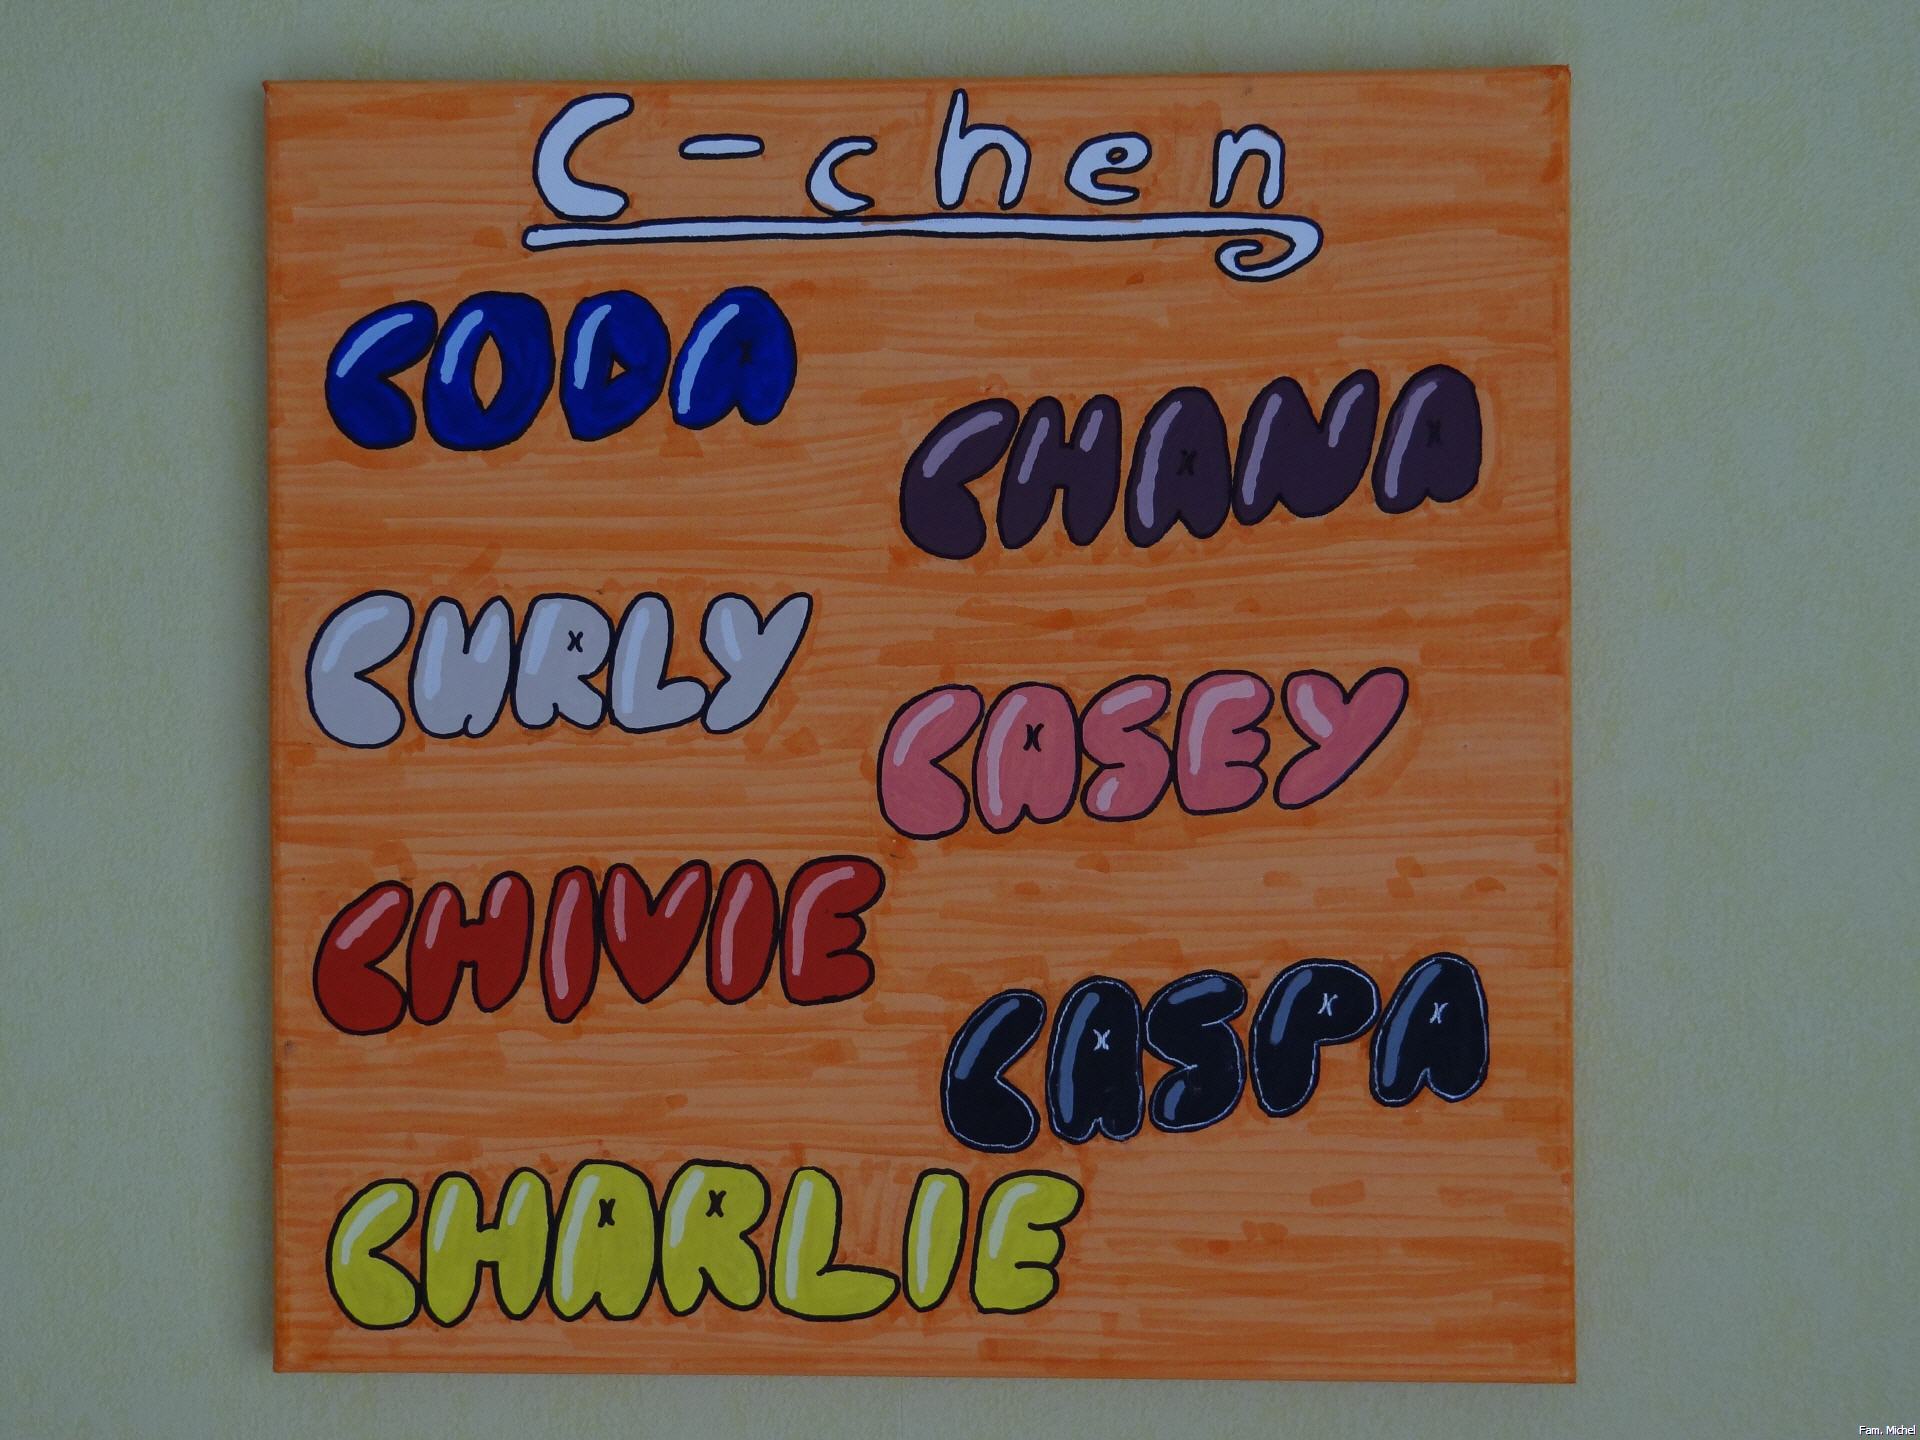 C-chen
CODA
CHANA
CURLY
CASEY
CHIVIE
CASPA
CHARLIE
Fam. Michel